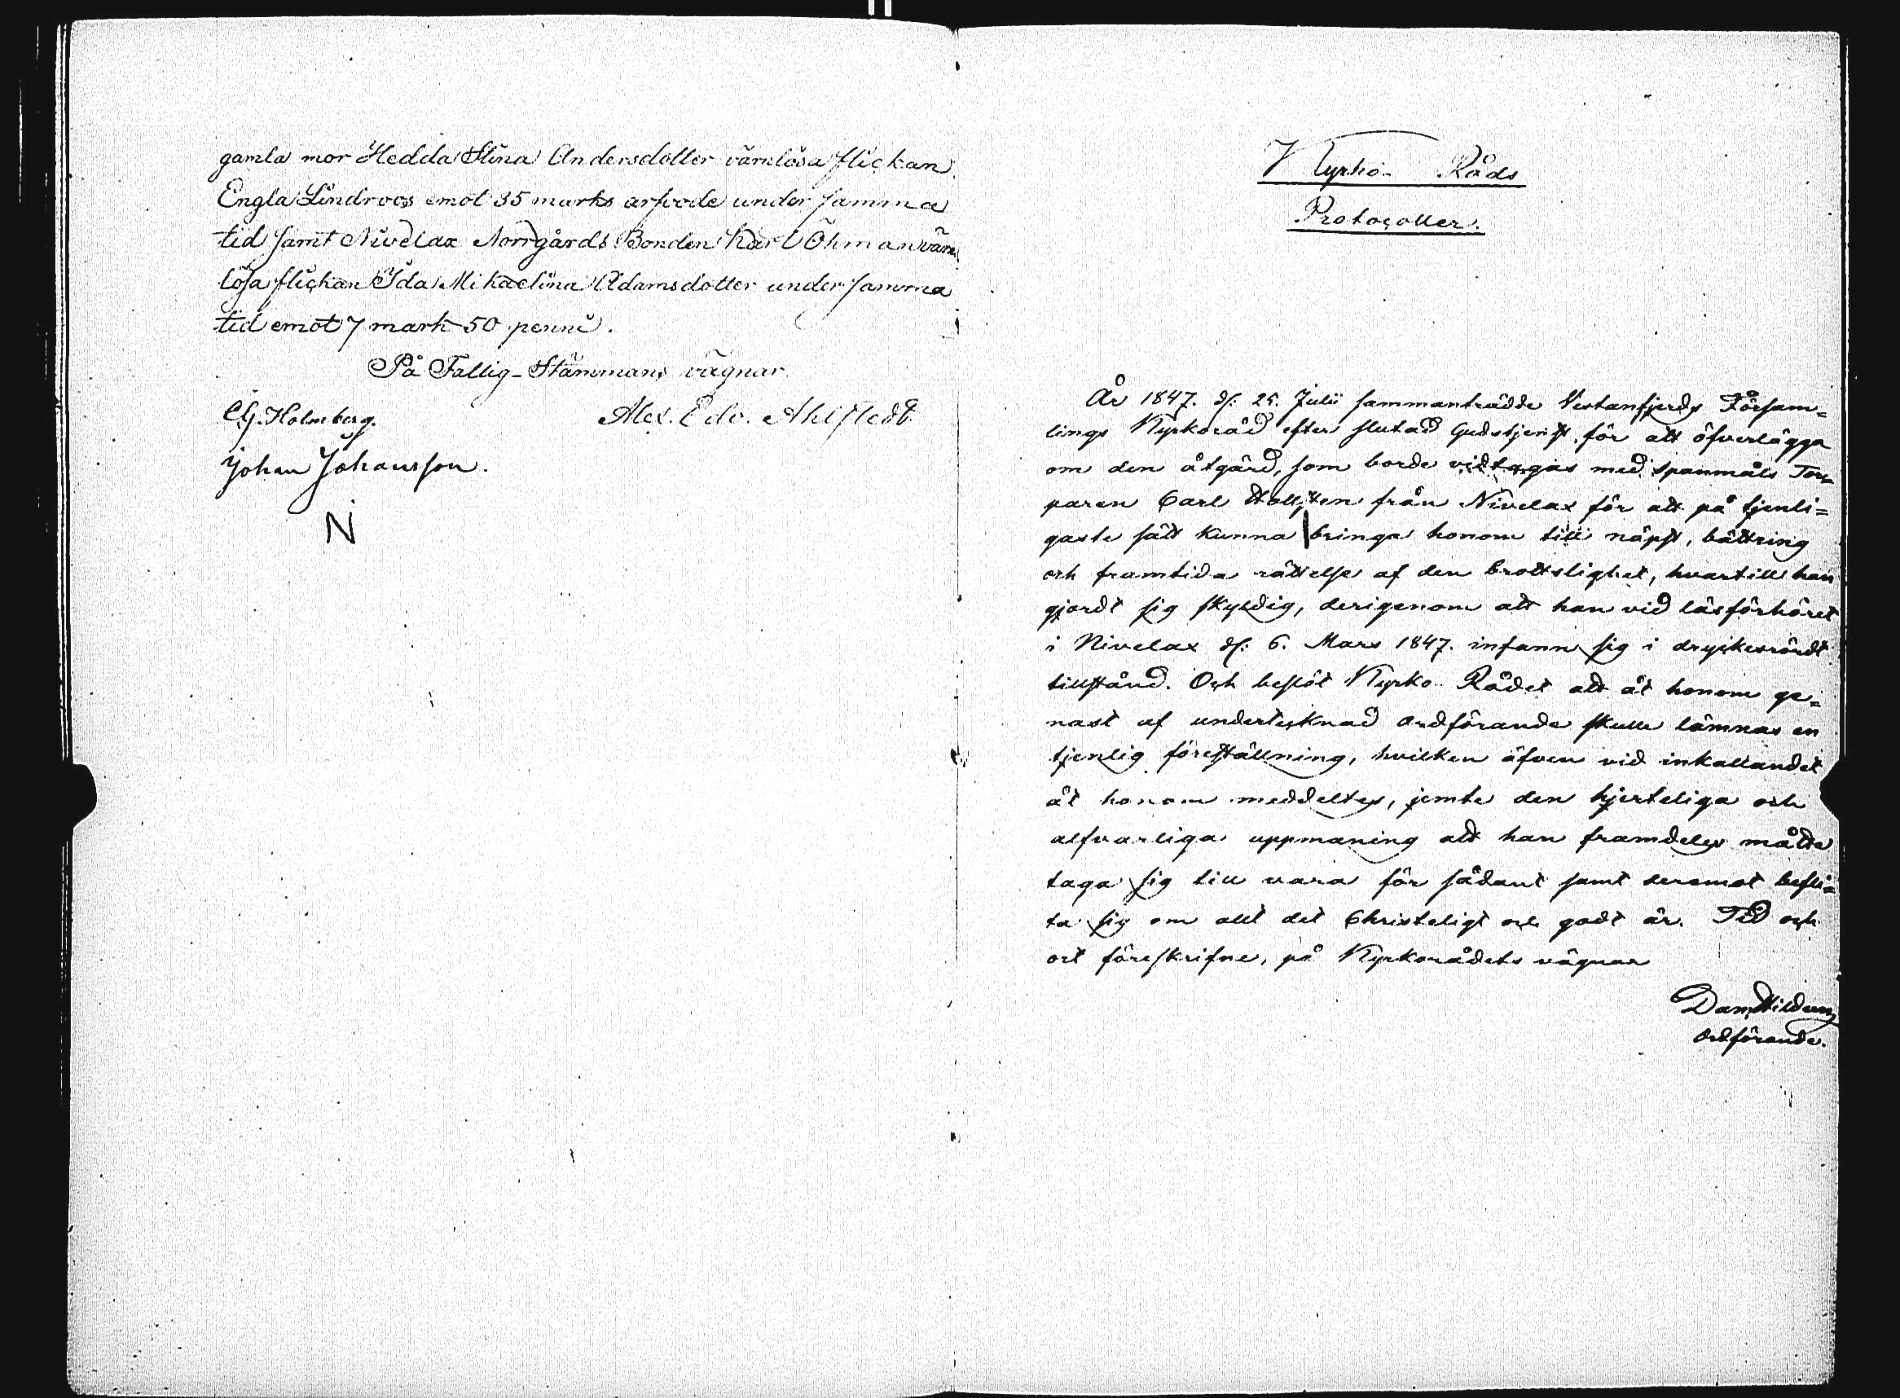 gamla mor Hedda Stina Andersdotter värnlösa flickan
Engla Lindroos emot 35 marks arfvode under samma
tid samt Nivelax Norrgårds Bonden Karl Öhman värn
lösa flickan Ida Mikaelina Adamsdotter under samma
tid emot 7 mark 50 penni.
På Fattig-Stämmans vägnar.
C.G. Holmberg. Alex. Edv. Ahlstedt
Johan Johansson.
N
Kyrko- Råds
Protocoller.
År 1847. d: 25. Julii sammanträdde Vestanfjerds Försam=
lings Kyrkoråd efter slutad Gudstjenst för att öfverlägga
om den åtgärd, som borde vidtagas med spanmåls Tor=
paren Carl från Nivelax för att på tjenli=
gaste sätt kunna bringa honom till näpst, bättring
och framtida rättelse af den brottslighet, hvartill han
gjordt sig skyldig, derigenom att han vid läsförhöret
i Nivelax d: 6. Mars 1847. infann sig i dryckesrördt
tillstånd. Och beslöt Kyrko Rådet att åt honom ge=
nast af undertecknad ordförande skulle lämnas en
tjenlig föreställning, hvilken äfven vid inkallandet
åt honom meddeltes, jemte den hjerteliga och
alfvarliga uppmaning att han framdeles måtte
taga sig till vara för sådant samt deremot befli=
ta sig om allt det Christeligt och godt är. Tid och
ort föreskrifne, på Kyrkorådets vägnar
Dan.
Ordförande.